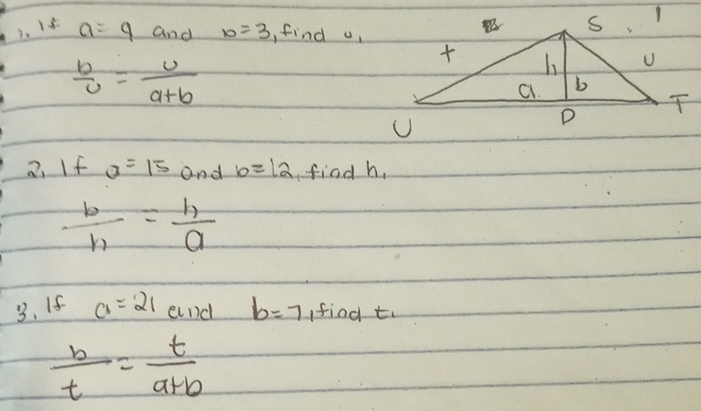 1. If a=9 and b=3, find u.
b/u = u/a+b
S
t
h
u
a
b
U
D
T
2. If a=15 and b=12, find h.
b/h = h/a
3. If a=21 and b=7, find t.
b/t = t/a+b